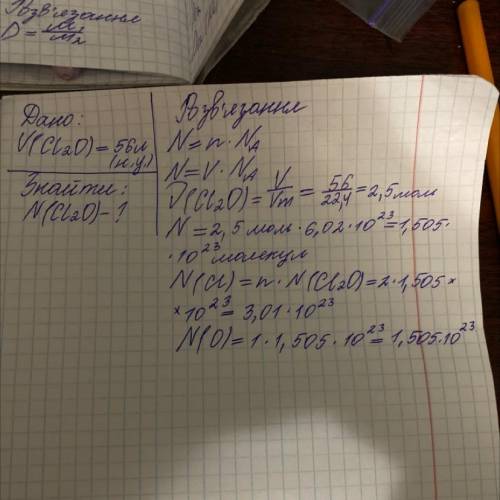 Розв'язання
D = M₁/M₂
Дано:
V(Cl₂O) = 56л
(н.у.)
Знайти:
N(Cl₂O) - ?
Розв'язання
N = n · N_A
N = V · N_A
ν(Cl₂O) = V/Vm = 56/22,4 = 2,5 моль
N = 2,5 моль · 6,02 · 10²³ = 1,505 ·
· 10²³ молекул
N(Cl) = n · N(Cl₂O) = 2 · 1,505 ×
× 10²³ = 3,01 · 10²³
N(O) = 1 · 1,505 · 10²³ = 1,505 · 10²³